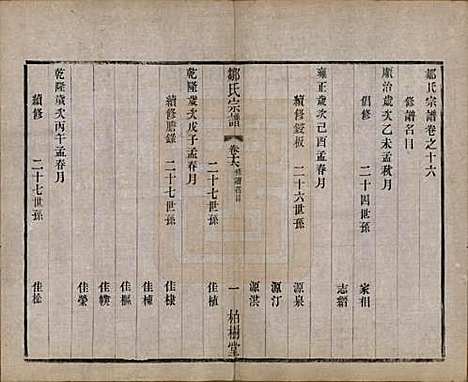 鄒氏宗譜卷之十六
修譜名目
順治歲次乙未孟秋月
倡修 二十四世孫 家相
志縉
雍正歲次己酉孟春月
續修鋟板 二十六世孫 源泉
源汀
源淇
鄒氏宗譜 卷十六 修譜名目 一 柏樹堂
二十七世孫 佳植
乾隆歲次戊子孟春月
續修謄錄 二十七世孫 佳棣
佳棟
佳樞
佳
佳榮
乾隆歲次丙午孟春月
續修 二十七世孫 佳松